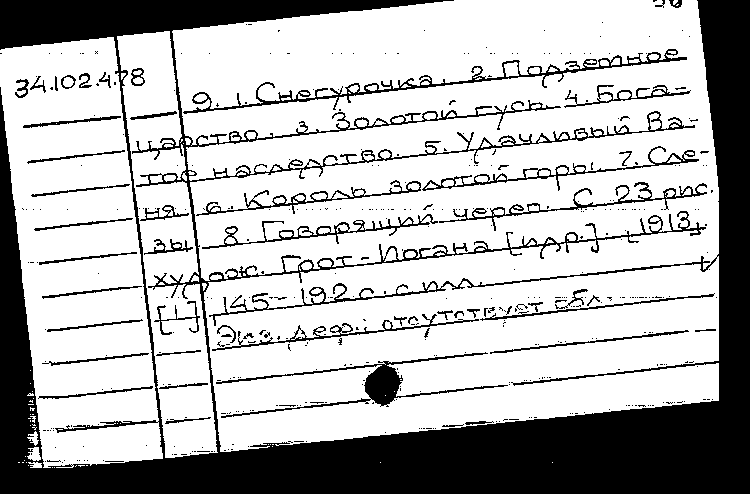 50
34.102.4.78
9. 1. Снегурочка. 2. Подземное
царство. 3. Золотой гусь 4. Бога-
тое наследство. 5. Удачливый Ва-
ня 6. Король золотой горы. 7. Сле-
зы 8. Говорящий череп. С 23 рис.
худож. Грот-Иогана [и др.]. [1913]
[1] 145-192 с. с илл.
Экз. деф.: отсутствует обл.